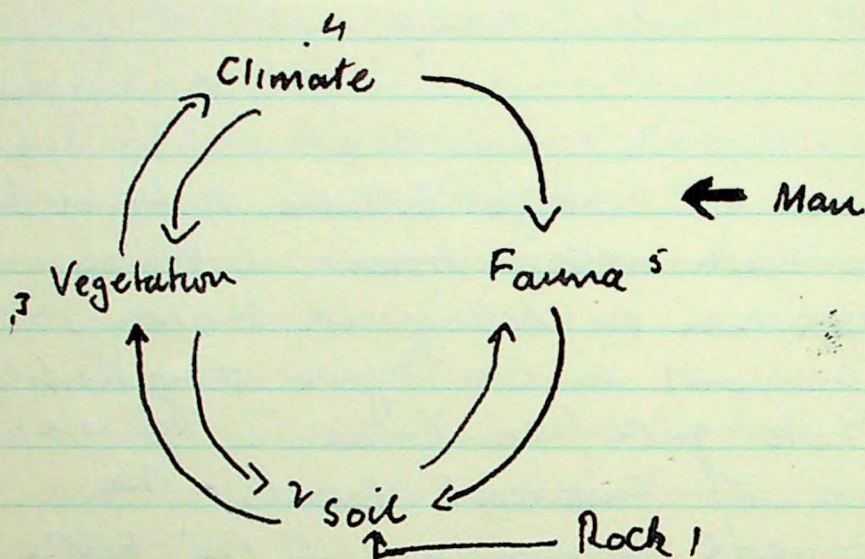 4
Climate
← Man
Vegetation
Fauna 5
3
2 Soil
Rock 1